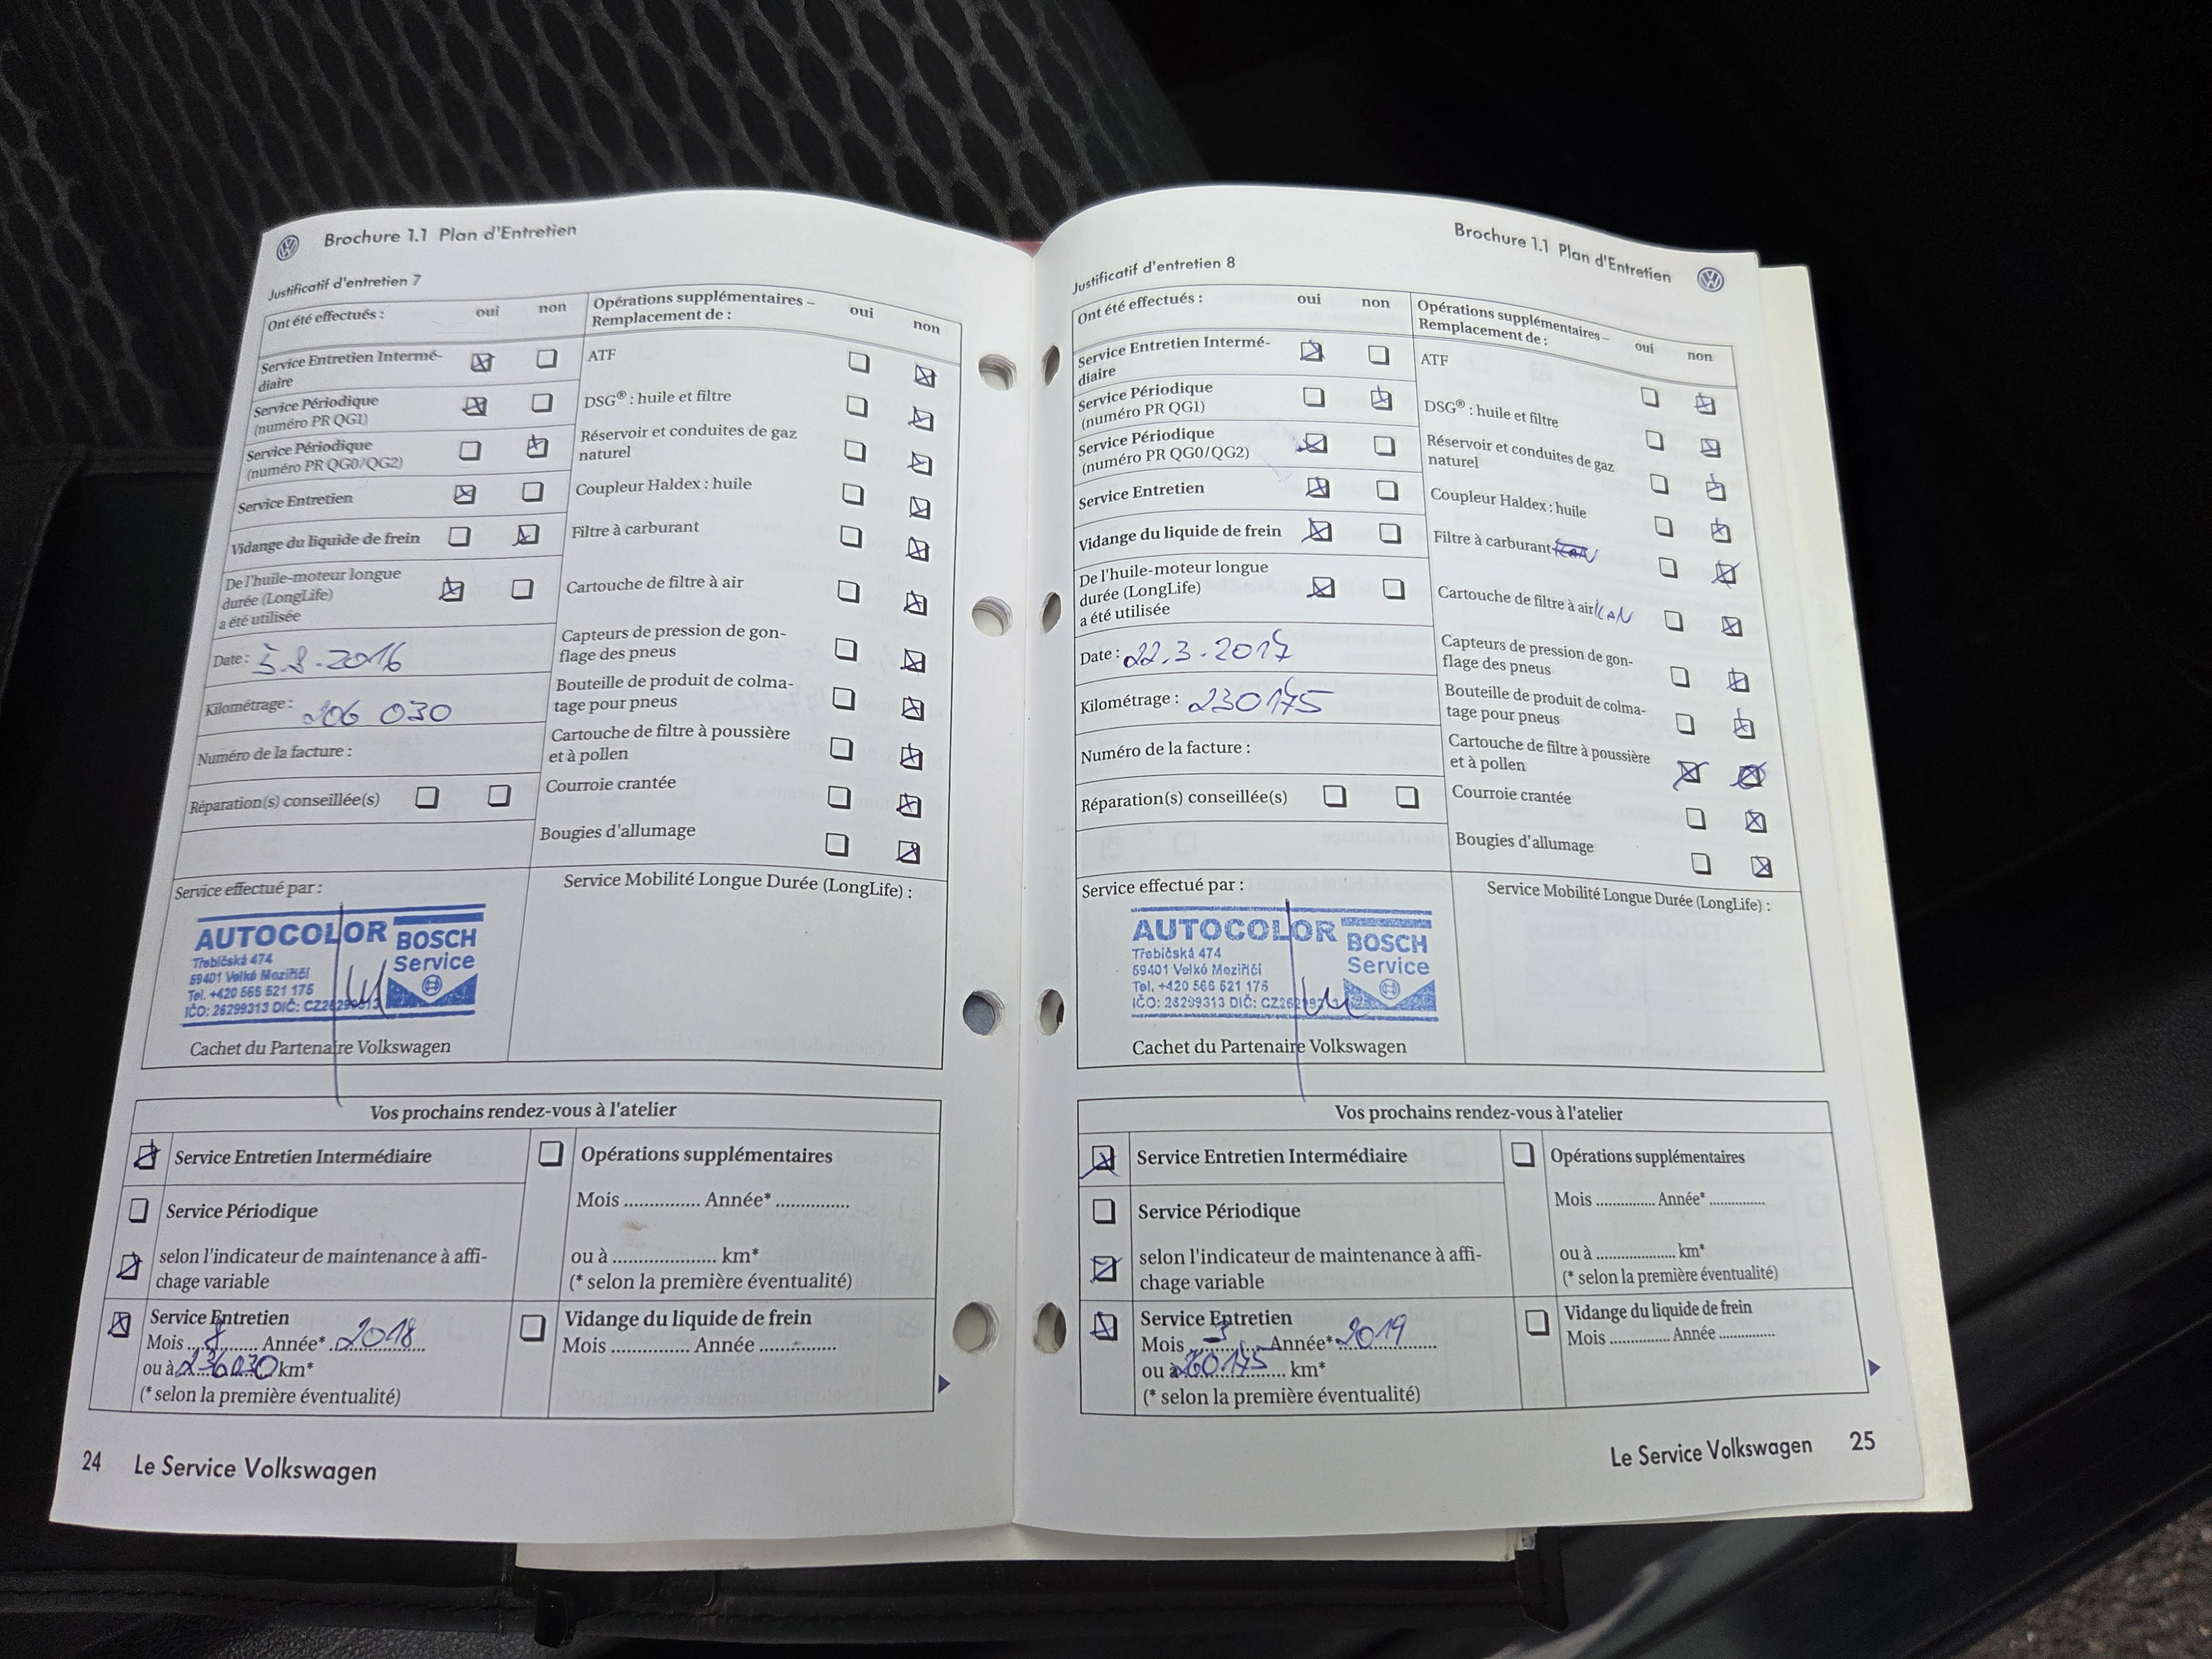 Brochure 1.1 Plan d'Entretien
Justificatif d'entretien 7
Ont été effectués : oui non
Service Entretien Intermé-
diaire
Service Périodique
(numéro PR QG1)
Service Périodique
(numéro PR QG0/QG2)
Service Entretien
Vidange du liquide de frein
De l'huile-moteur longue
durée (LongLife)
a été utilisée
Date : 5.8.2016
Kilométrage : 206 030
Numéro de la facture :
Réparation(s) conseillée(s)
Opérations supplémentaires –
Remplacement de : oui non
ATF
DSG® : huile et filtre
Réservoir et conduites de gaz
naturel
Coupleur Haldex : huile
Filtre à carburant
Cartouche de filtre à air
Capteurs de pression de gon-
flage des pneus
Bouteille de produit de colma-
tage pour pneus
Cartouche de filtre à poussière
et à pollen
Courroie crantée
Bougies d'allumage
Service effectué par :
AUTOCOLOR
Třebíčská 474
59401 Velké Meziříčí
Tel. +420 566 521 175
IČO: 26299313 DIČ: CZ26299313
BOSCH
Service
Cachet du Partenaire Volkswagen
Service Mobilité Longue Durée (LongLife) :
Vos prochains rendez-vous à l'atelier
Service Entretien Intermédiaire
Service Périodique
selon l'indicateur de maintenance à affi-
chage variable
Service Entretien
Mois ... 8 ... Année* 2018
ou à 236030 km*
(* selon la première éventualité)
Opérations supplémentaires
Mois .............. Année* ..............
ou à .................... km*
(* selon la première éventualité)
Vidange du liquide de frein
Mois .............. Année ..............
24 Le Service Volkswagen
Brochure 1.1 Plan d'Entretien
Justificatif d'entretien 8
Ont été effectués : oui non
Service Entretien Intermé-
diaire
Service Périodique
(numéro PR QG1)
Service Périodique
(numéro PR QG0/QG2)
Service Entretien
Vidange du liquide de frein
De l'huile-moteur longue
durée (LongLife)
a été utilisée
Date : 22.3.2017
Kilométrage : 230175
Numéro de la facture :
Réparation(s) conseillée(s)
Opérations supplémentaires –
Remplacement de : oui non
ATF
DSG® : huile et filtre
Réservoir et conduites de gaz
naturel
Coupleur Haldex : huile
Filtre à carburant
Cartouche de filtre à air KAN
Capteurs de pression de gon-
flage des pneus
Bouteille de produit de colma-
tage pour pneus
Cartouche de filtre à poussière
et à pollen
Courroie crantée
Bougies d'allumage
Service effectué par :
AUTOCOLOR
Třebíčská 474
59401 Velké Meziříčí
Tel. +420 566 521 175
IČO: 26299313 DIČ:
BOSCH
Service
Cachet du Partenaire Volkswagen
Service Mobilité Longue Durée (LongLife) :
Vos prochains rendez-vous à l'atelier
Service Entretien Intermédiaire
Service Périodique
selon l'indicateur de maintenance à affi-
chage variable
Service Entretien
Mois ... 3 ... Année* 2019
ou à 260175 km*
(* selon la première éventualité)
Opérations supplémentaires
Mois .............. Année* ..............
ou à .................... km*
(* selon la première éventualité)
Vidange du liquide de frein
Mois .............. Année ..............
Le Service Volkswagen 25